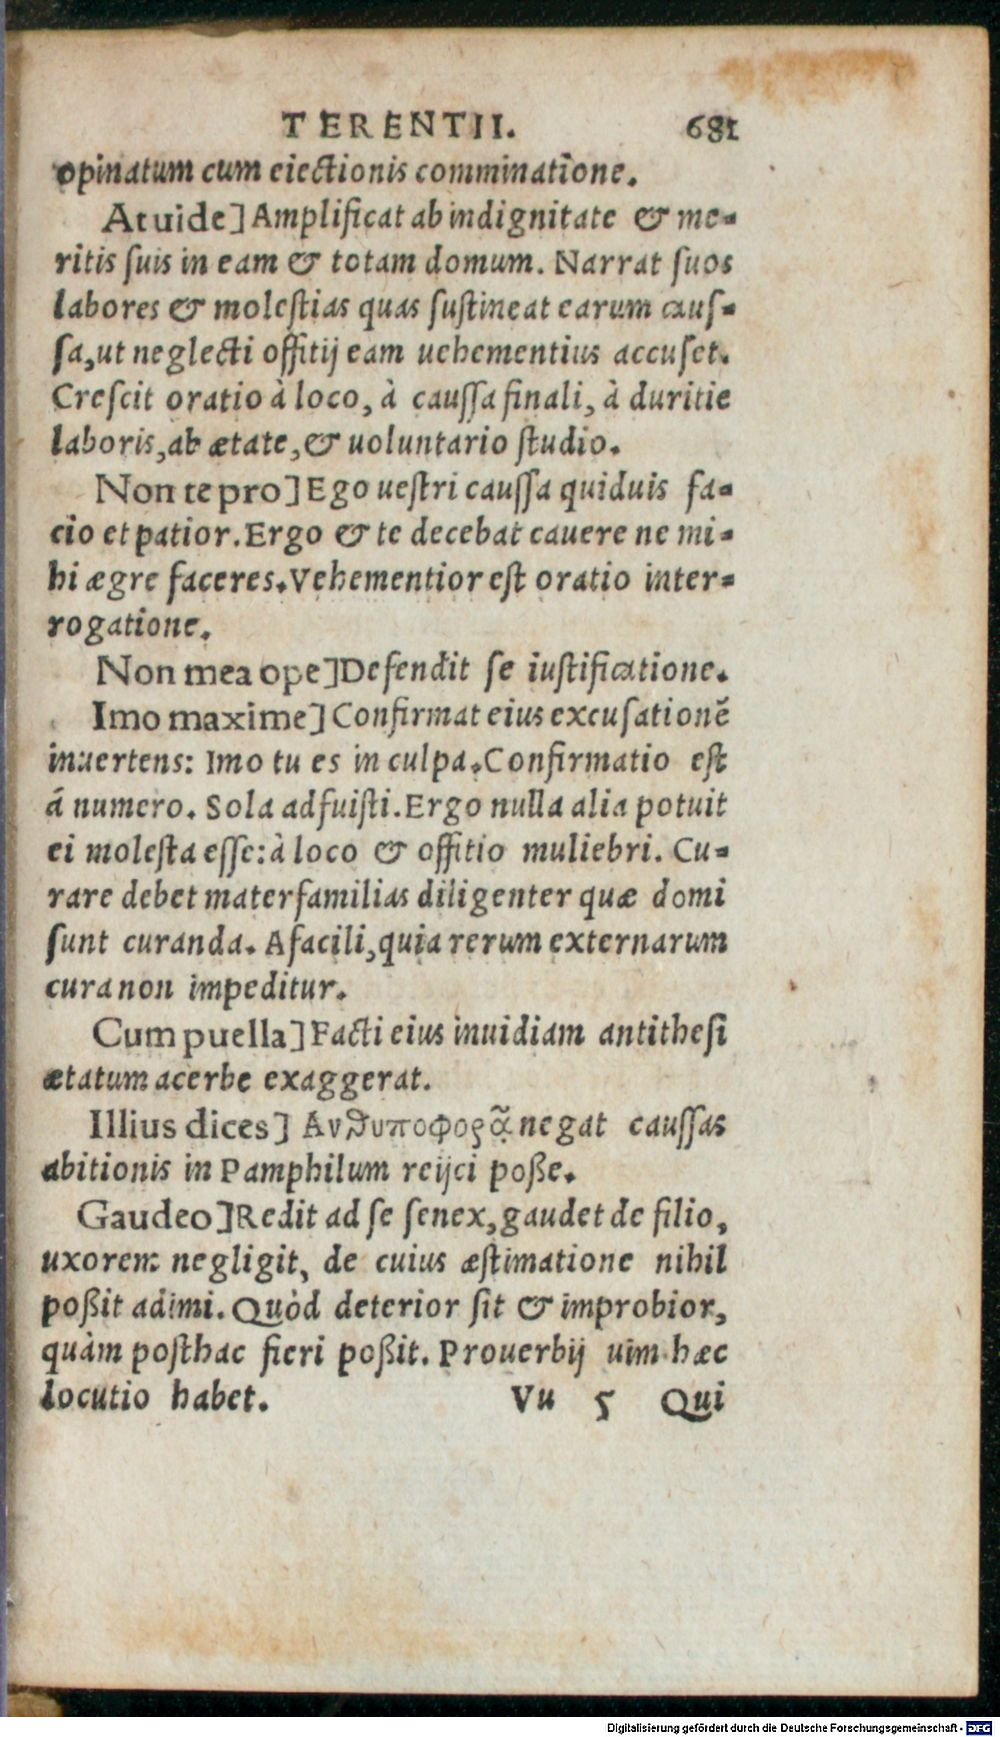 TERENTII. 681
opinatum cum eiectionis comminatione.
At uide] Amplificat ab indignitate & me-
ritis suis in eam & totam domum. Narrat suos
labores & molestias quas sustineat earum caus-
sa, ut neglecti offitij eam uehementius accuset.
Crescit oratio à loco, à caussa finali, à duritie
laboris, ab ætate, & uoluntario studio.
Non te pro] Ego uestri caussa quiduis fa-
cio et patior. Ergo & te decebat cauere ne mi-
hi ægre faceres. Vehementior est oratio inter-
rogatione.
Non mea ope] Defendit se iustificatione.
Imo maxime] Confirmat eius excusationẽ
inuertens: Imo tu es in culpa. Confirmatio est
á numero. Sola adfuisti. Ergo nulla alia potuit
ei molesta esse: à loco & offitio muliebri. Cu-
rare debet materfamilias diligenter quæ domi
sunt curanda. A facili, quia rerum externarum
cura non impeditur.
Cum puella] Facti eius inuidiam antithesi
ætatum acerbe exaggerat.
Illius dices] Ανθυποφορᾷ negat caussas
abitionis in Pamphilum reijci poße.
Gaudeo] Redit ad se senex, gaudet de filio,
uxorem negligit, de cuius æstimatione nihil
poßit adimi. Quòd deterior sit & improbior,
quàm posthac fieri poßit. Prouerbij uim hæc
locutio habet. Vu 5 Qui
Digitalisierung gefördert durch die Deutsche Forschungsgemeinschaft - DFG